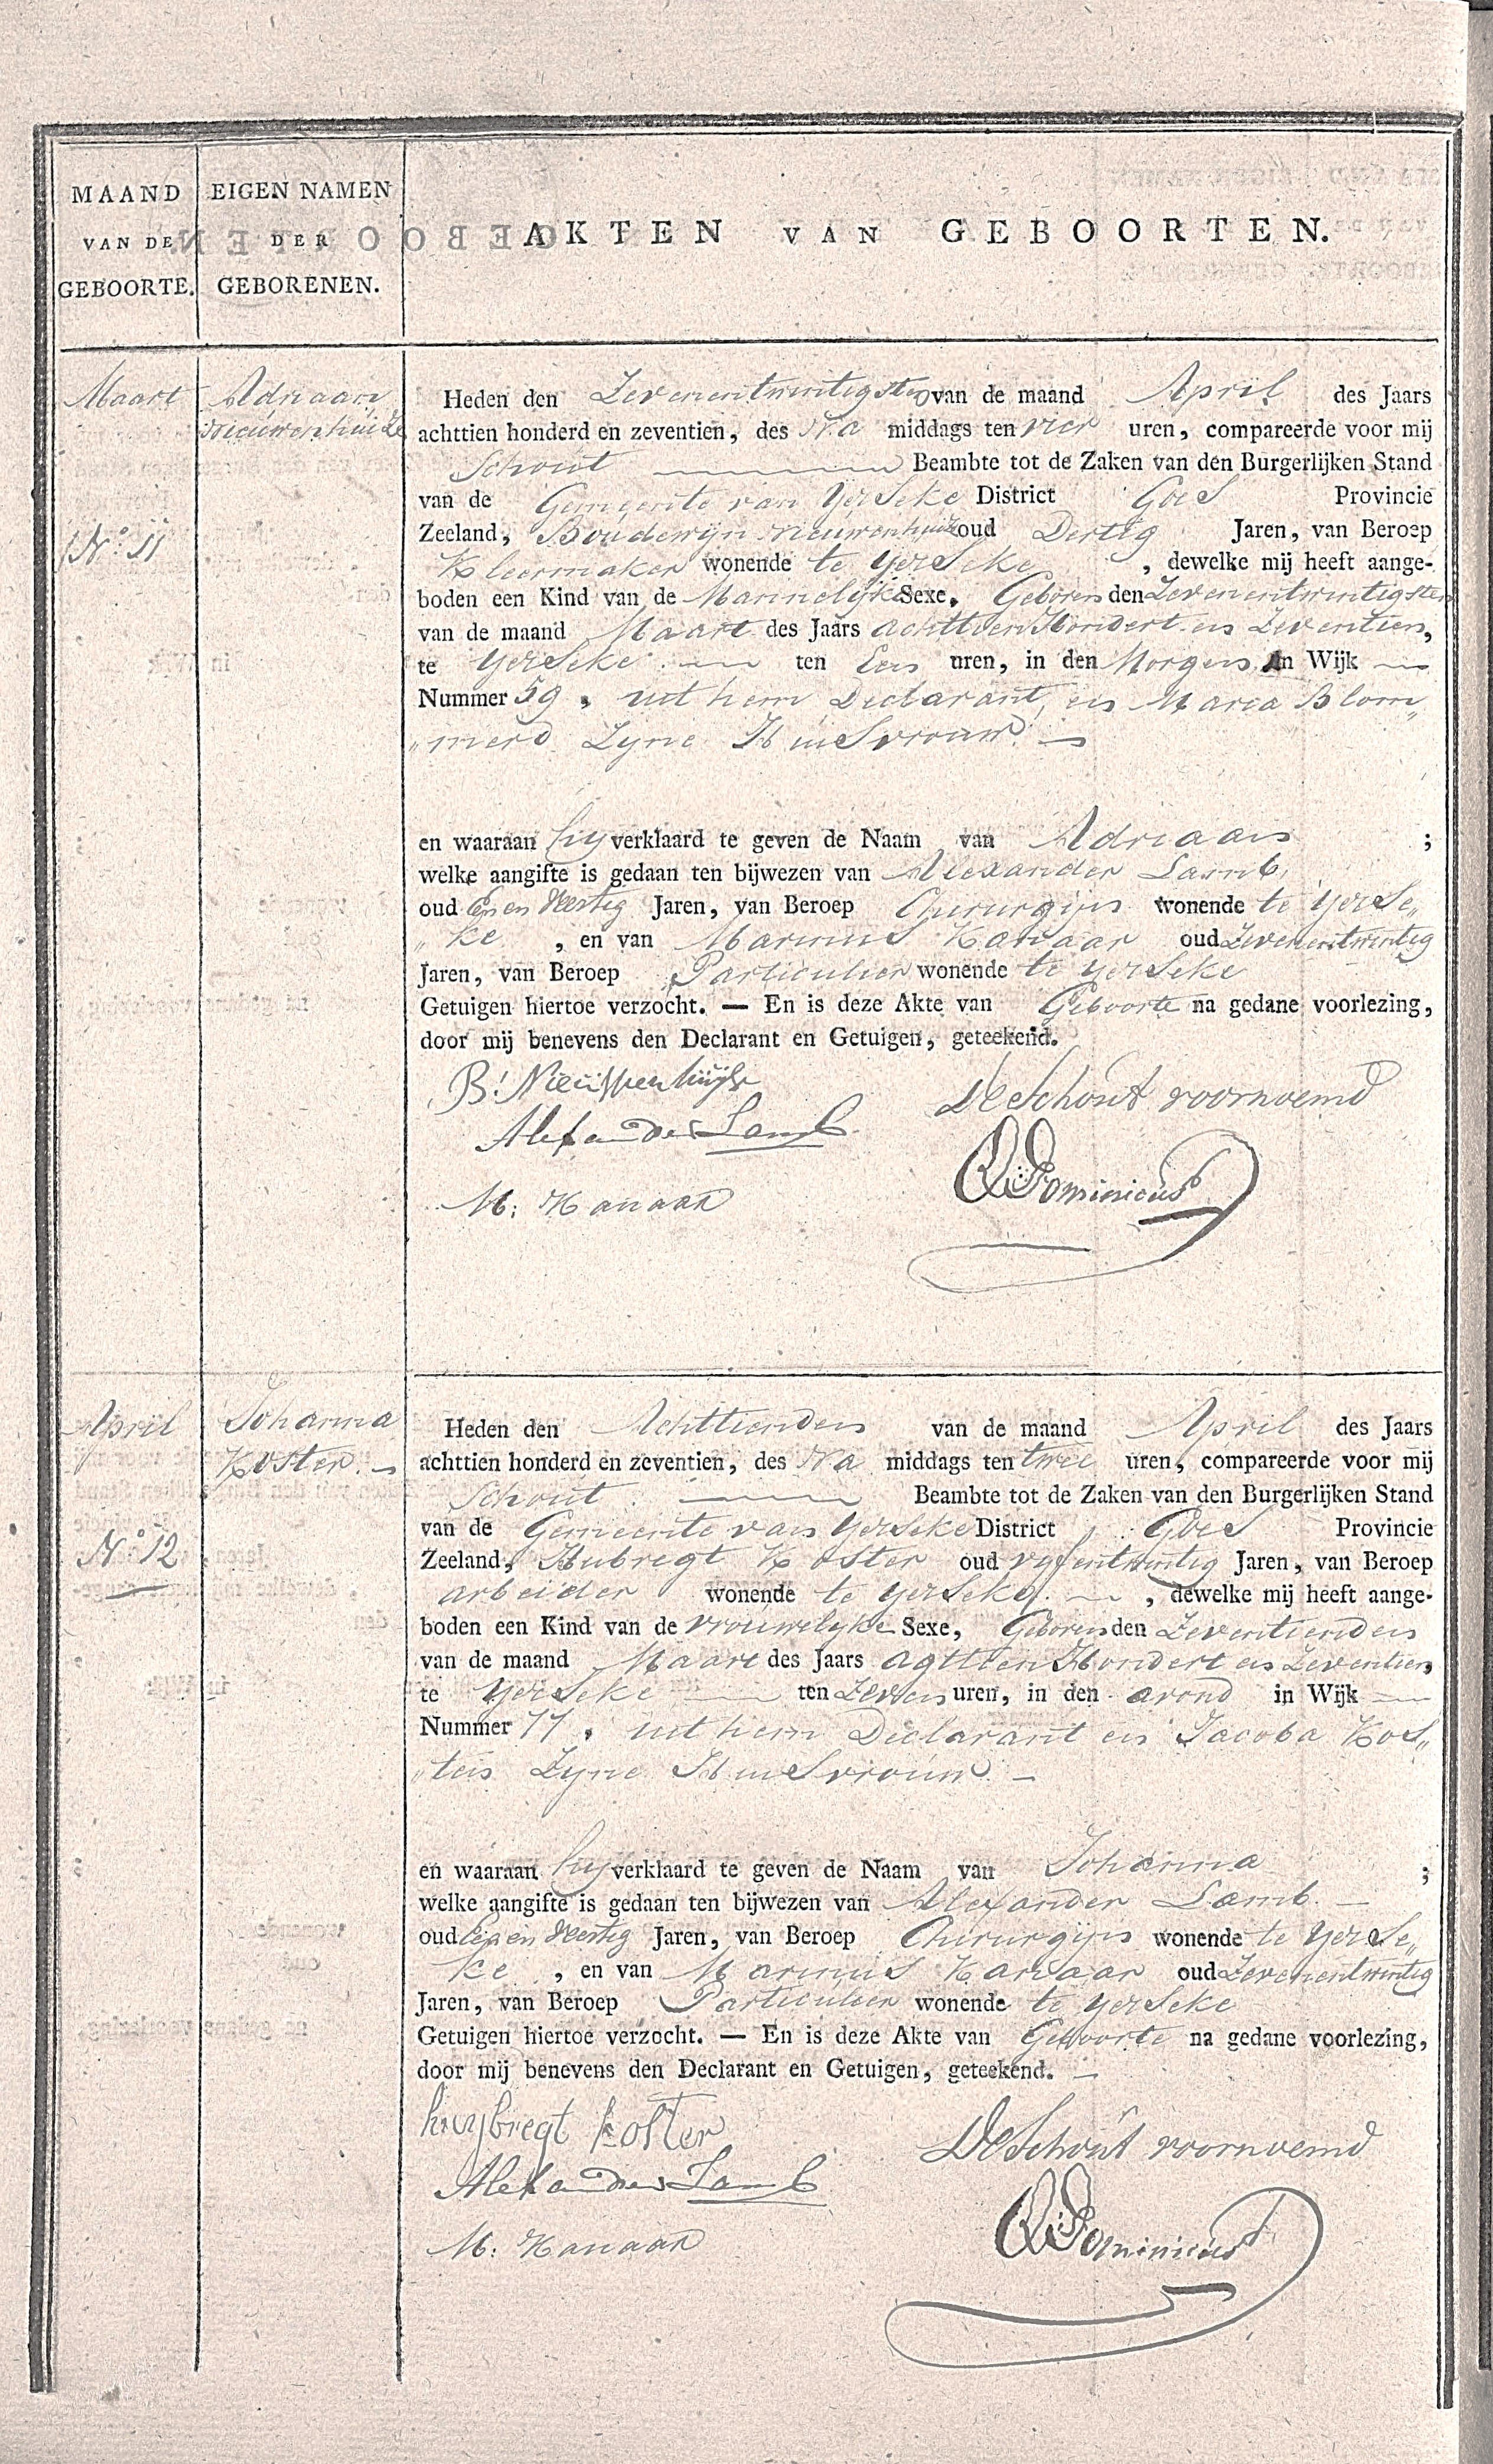 MAAND
VAN DE
GEBOORTE.
EIGEN NAMEN
DER
GEBORENEN.
AKTEN VAN GEBOORTEN.
Maart
Adriaan
Nieuwenhuize
No. 11
Heden den Zevenentwintigsten van de maand April des Jaars
achttien honderd en zeventien, des Na middags ten vier uren, compareerde voor mij
Schout Beambte tot de Zaken van den Burgerlijken Stand
van de Gemeente van YerSeke District Goes Provincie
Zeeland, Boudewijn Nieuwenhuize oud Dertig Jaren, van Beroep
Kleermaker wonende te YerSeke, dewelke mij heeft aange-
boden een Kind van de Mannelijke Sexe, Geboren den Zevenentwintigsten
van de maand Maart des Jaars achttien Hondert en Zeventien,
te YerSeke ten Een uren, in den Morgen in Wijk —
Nummer 59, uit hem Declarant, en Maria Blom„
„merd Zyne HuiSvrouw. —
en waaraan hy verklaard te geven de Naam van Adriaan ;
welke aangifte is gedaan ten bijwezen van Alexander Lamb,
oud Een en Veertig Jaren, van Beroep Chirurgijn wonende te YerSe„
„ke, en van Marinus Kanaar oud Zevenentwintig
Jaren, van Beroep Particulier wonende te YerSeke
Getuigen hiertoe verzocht. — En is deze Akte van Geboorte na gedane voorlezing,
door mij benevens den Declarant en Getuigen, geteekend.
B: Nieuwenhuijse
De Schout voornoemd
Alexander Lamb
Dominicus
M: Kanaar
April
Johanna
Koster. —
No. 12
Heden den Achttienden van de maand April des Jaars
achttien honderd en zeventien, des Na middags ten twee uren, compareerde voor mij
Schout. Beambte tot de Zaken van den Burgerlijken Stand
van de Gemeente van YerSeke District Goes Provincie
Zeeland, Hubregt Koster oud vyfentwintig Jaren, van Beroep
arbeider wonende te YerSeke. —, dewelke mij heeft aange-
boden een Kind van de vrouwelyke Sexe, Geboren den Zeventienden
van de maand Maart des Jaars agttien Hondert en Zeventien,
te YerSeke — ten Zeven uren, in den avond in Wijk —
Nummer 77, uit hem Declarant en Jacoba Kos„
„ten Zyne HuiSvrouw. —
en waaraan hy verklaard te geven de Naam van Johanna ;
welke aangifte is gedaan ten bijwezen van Alexander Lamb —
oud Een en Veertig Jaren, van Beroep Chirurgijn wonende te YerSe„
ke, en van Marinus Kanaar oud Zevenentwintig
Jaren, van Beroep Particulier wonende te YerSeke
Getuigen hiertoe verzocht. — En is deze Akte van Geboorte na gedane voorlezing,
door mij benevens den Declarant en Getuigen, geteekend. —
huybregt koster
De Schout voornoemd
Alexander Lamb
Dominicus
M: Kanaar